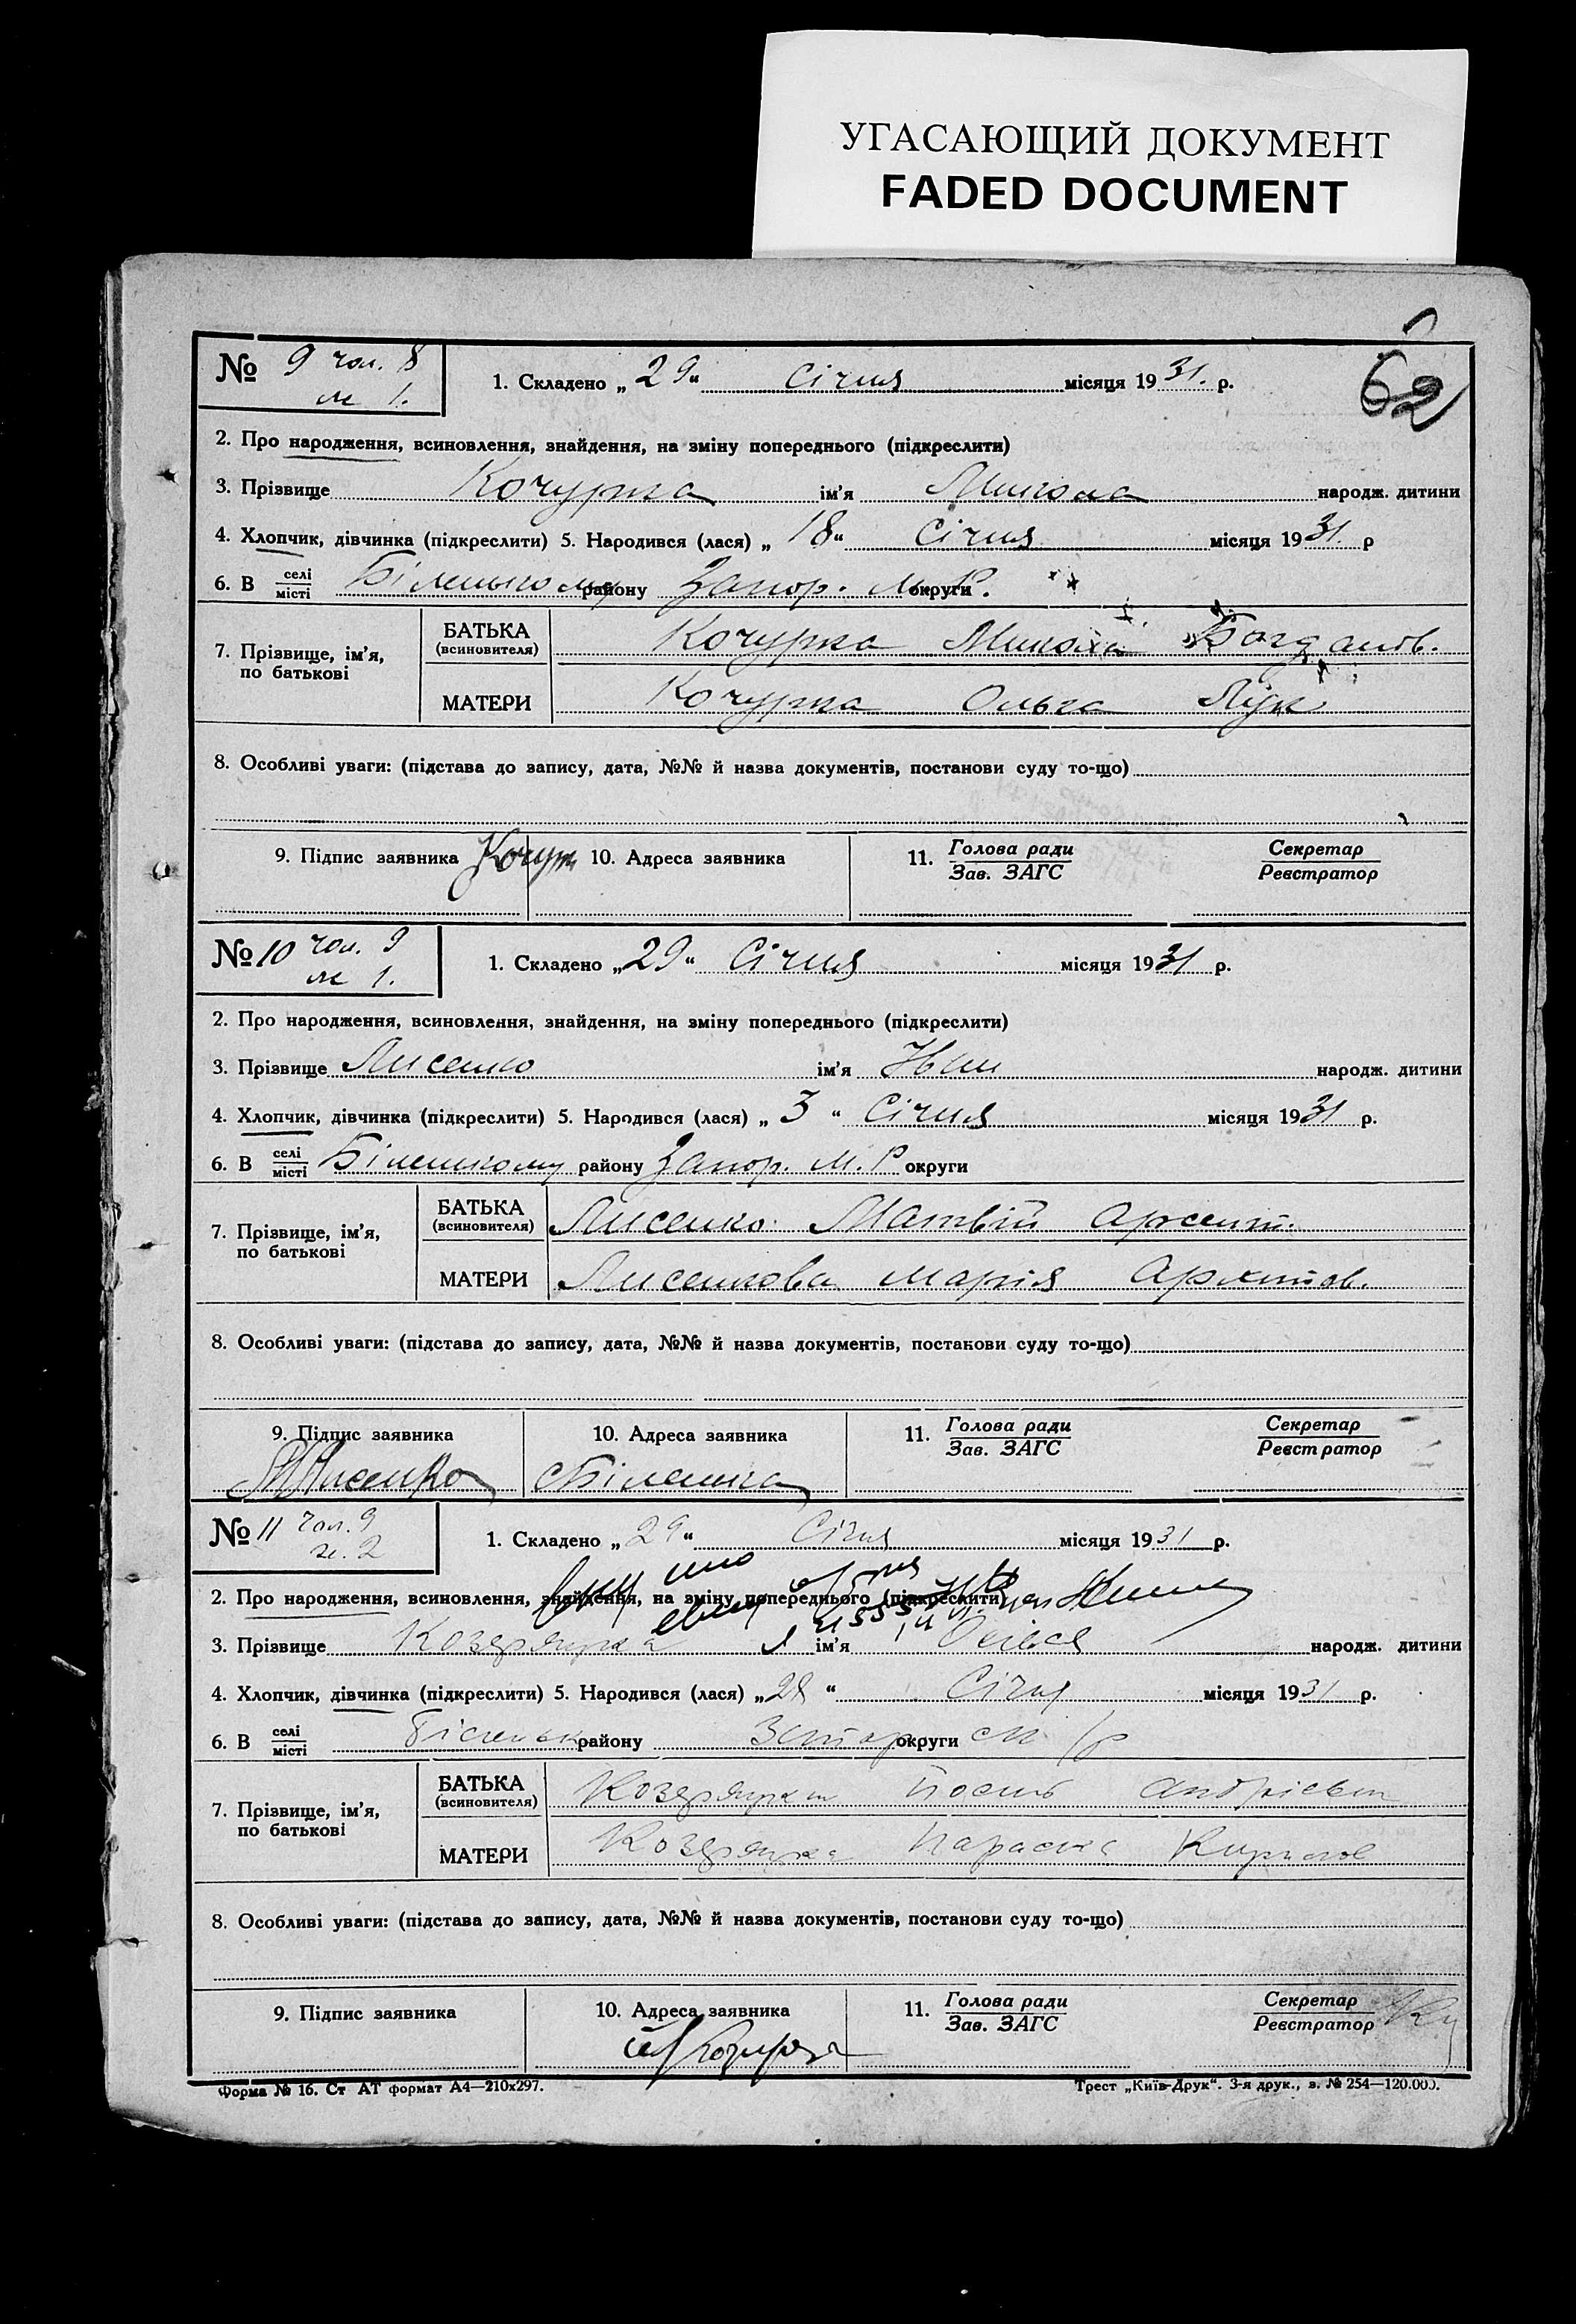 УГАСАЮЩИЙ ДОКУМЕНТ
FADED DOCUMENT
62
№ 9 чол. 8
ж 1.
1. Складено „29“ Січня місяця 1931. р.
2. Про народження, всиновлення, знайдення, на зміну попереднього (підкреслити)
3. Прізвище Кочурка ім'я Микола народж. дитини
4. Хлопчик, дівчинка (підкреслити) 5. Народився (лася) „18“ Січня місяця 1931 р
6. В селі/місті Біленькому району Запор. М.Р. округи
7. Прізвище, ім'я, по батькові
БАТЬКА (всиновителя) Кочурка Микола Богданов.
МАТЕРИ Кочурка Ольга Лук
8. Особливі уваги: (підстава до запису, дата, №№ й назва документів, постанови суду то-що)
9. Підпис заявника 10. Адреса заявника 11. Голова ради/Зав. ЗАГС Секретар/Реєстратор
№ 10 чол. 9
ж 1.
1. Складено „29“ Січня місяця 1931 р.
2. Про народження, всиновлення, знайдення, на зміну попереднього (підкреслити)
3. Прізвище Лисенко ім'я Іван народж. дитини
4. Хлопчик, дівчинка (підкреслити) 5. Народився (лася) „3“ Січня місяця 1931 р.
6. В селі/місті Біленькому району Запор. М.Р округи
7. Прізвище, ім'я, по батькові
БАТЬКА (всиновителя) Лисенко Матвій Арсент.
МАТЕРИ Лисенкова Марія
8. Особливі уваги: (підстава до запису, дата, №№ й назва документів, постанови суду то-що)
9. Підпис заявника 10. Адреса заявника 11. Голова ради/Зав. ЗАГС Секретар/Реєстратор
МЛисенко с Біленька
№ 11 чол. 9
ж. 2
1. Складено „29“ Січня місяця 1931 р.
2. Про народження, всиновлення, знайдення, на зміну попереднього (підкреслити)
3. Прізвище ім'я народж. дитини
4. Хлопчик, дівчинка (підкреслити) 5. Народився (лася) „28“ Січня місяця 1931 р.
6. В селі/місті Біленьк району Запор округи м/р
7. Прізвище, ім'я, по батькові
БАТЬКА (всиновителя) Йосип Андрієвич
МАТЕРИ Параска Кирилов
8. Особливі уваги: (підстава до запису, дата, №№ й назва документів, постанови суду то-що)
9. Підпис заявника 10. Адреса заявника 11. Голова ради/Зав. ЗАГС Секретар/Реєстратор
Форма № 16. Ст АТ формат А4—210х297.
Трест „Київ-Друк“. 3-я друк., з. № 254—120.000.